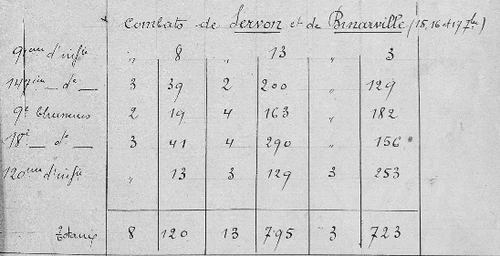 Combats de Servon et de Binarville (15, 16 et 17 7bre)
9eme d'inftie " 8 " 13 " 3
147eme _ do _ 3 39 2 200 " 129
9e Chasseurs 2 19 4 163 " 182
18e _ do _ 3 41 4 290 " 156
120eme d'inftie " 13 3 129 3 253
Totaux 8 120 13 795 3 723